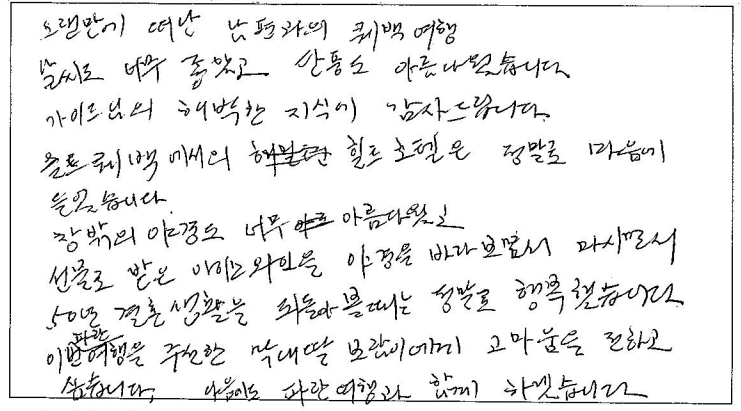 오랜만에 떠난 남편과의 퀘백 여행
날씨도 너무 좋았고 단풍도 아름다웠습니다.
가이드님의 해박한 지식에 감사드립니다.
올드퀘백에서의 힐튼호텔은 정말로 마음에
들었습니다.
창밖의 야경도 너무 아름다웠고
선물로 받은 아이스와인을 야경을 바라보면서 마시면서
50년 결혼생활을 뒤돌아볼때는 정말로 행복했습니다.
이번 파란여행을 추천한 막내딸 보람이에게 고마움을 전하고
싶습니다. 다음에도 파란여행과 함께 하겠습니다.